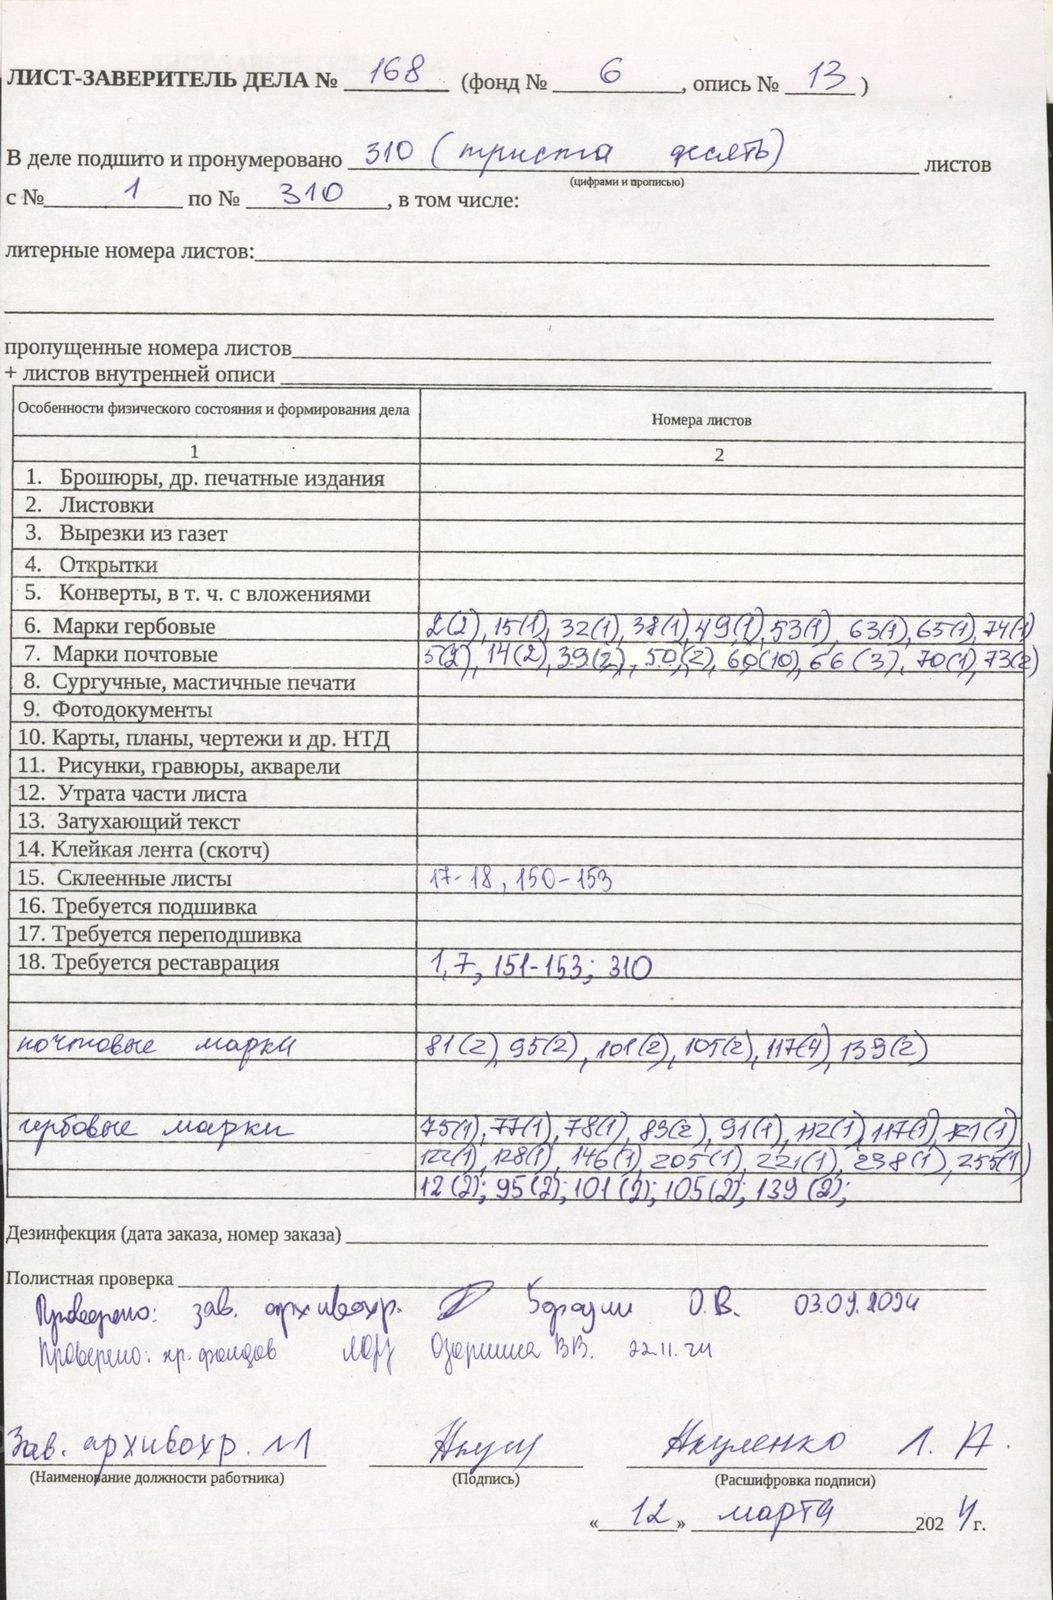 ЛИСТ-ЗАВЕРИТЕЛЬ ДЕЛА № 168 (фонд № 6, опись № 13)
В деле подшито и пронумеровано 310 (триста десять) листов
(цифрами и прописью)
с № 1 по № 310, в том числе:
литерные номера листов:
пропущенные номера листов
+ листов внутренней описи
Особенности физического состояния и формирования дела Номера листов
1 2
1. Брошюры, др. печатные издания
2. Листовки
3. Вырезки из газет
4. Открытки
5. Конверты, в т. ч. с вложениями
6. Марки гербовые 2(2), 15(1), 32(1), 38(1), 49(1), 53(1), 63(1), 65(1), 74(1)
7. Марки почтовые 5(2), 14(2), 39(2), 50(2), 60(10), 66(3), 70(1), 73(2)
8. Сургучные, мастичные печати
9. Фотодокументы
10. Карты, планы, чертежи и др. НТД
11. Рисунки, гравюры, акварели
12. Утрата части листа
13. Затухающий текст
14. Клейкая лента (скотч)
15. Склеенные листы 17-18, 150-153
16. Требуется подшивка
17. Требуется переподшивка
18. Требуется реставрация 1, 7, 151-153; 310
почтовые марки 81(2), 95(2), 101(2), 105(2), 117(4), 139(2)
гербовые марки 75(1), 77(1), 78(1), 83(2), 91(1), 112(1), 117(1), 121(1)
122(1), 128(1), 146(1), 205(1), 221(1), 238(1), 255(1)
12(2); 95(2); 101(2); 105(2); 139(2);
Дезинфекция (дата заказа, номер заказа)
Полистная проверка
Проверено: зав. архивохр. О.В. 03.09.2024
Проверено: хр. фондов В.В. 22.11.24
Зав. архивохр. №1 Якуленко Л. А.
(Наименование должности работника) (Подпись) (Расшифровка подписи)
«12» марта 2024 г.